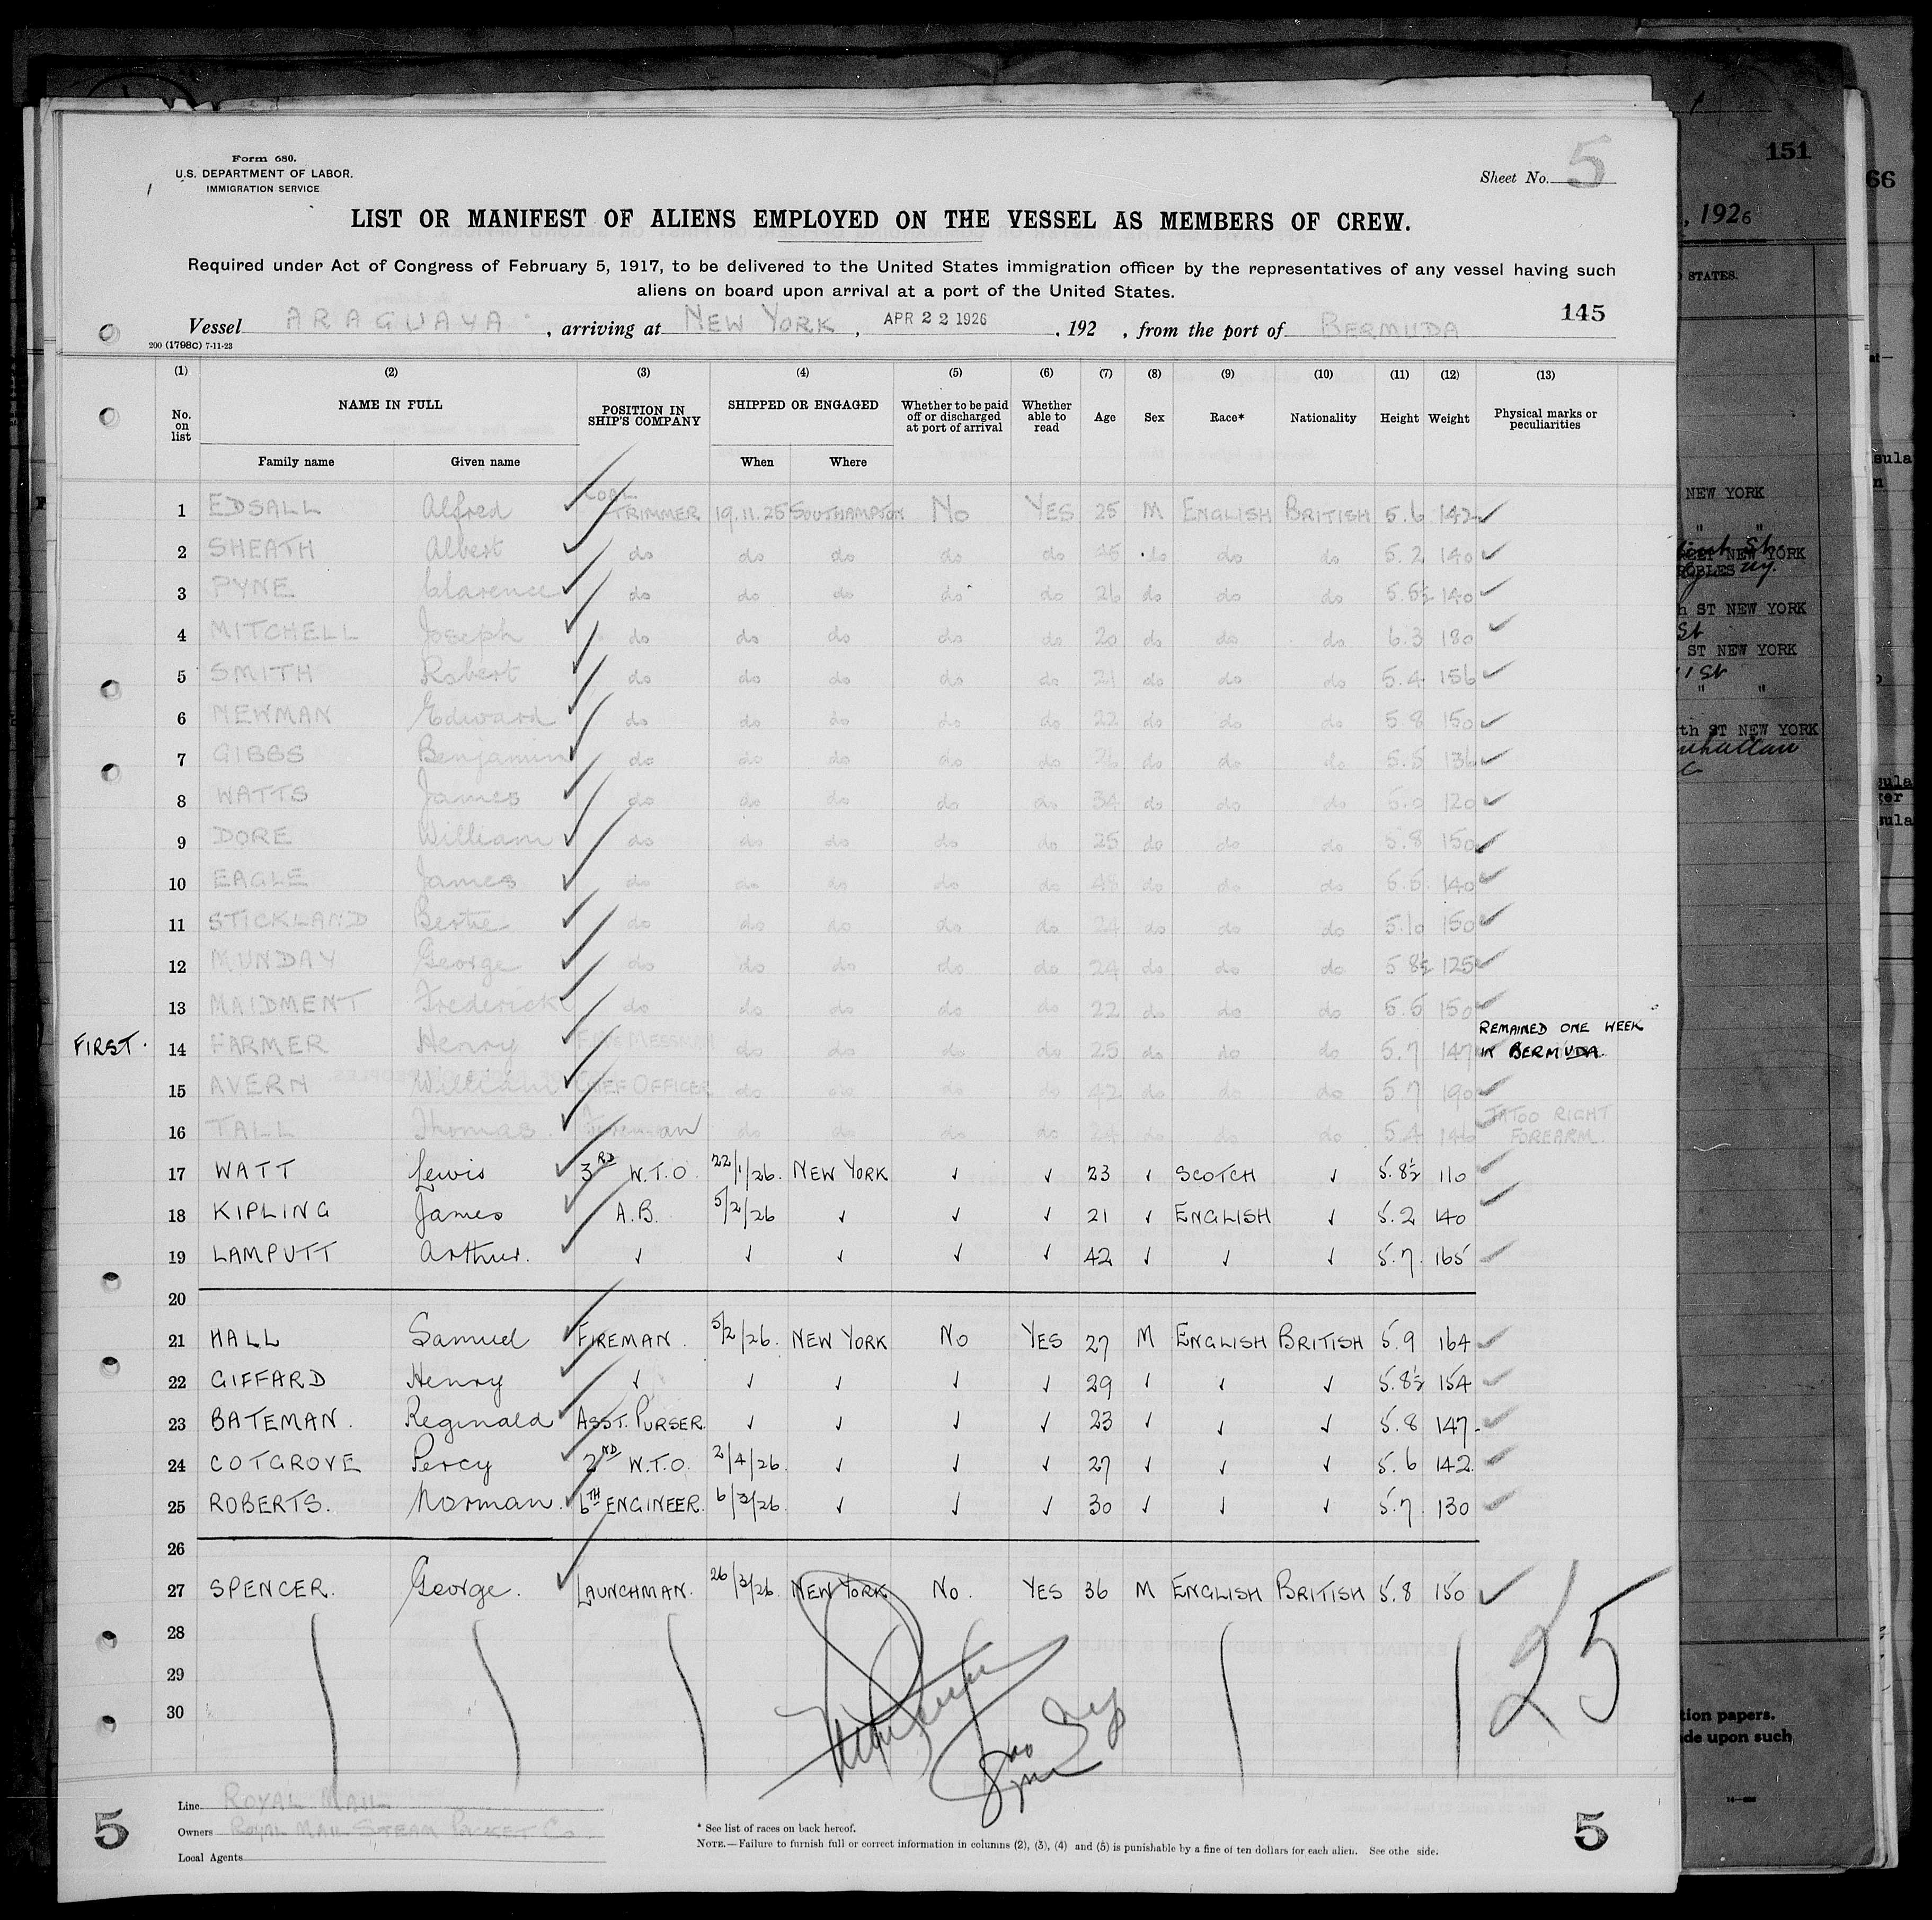 Form 680.
U.S. DEPARTMENT OF LABOR.
IMMIGRATION SERVICE
Sheet No. 5
LIST OR MANIFEST OF ALIENS EMPLOYED ON THE VESSEL AS MEMBERS OF CREW.
Required under Act of Congress of February 5, 1917, to be delivered to the United States immigration officer by the representatives of any vessel having such
aliens on board upon arrival at a port of the United States.
145
Vessel ARAGUAYA, arriving at NEW YORK, APR 22 1926, 192 , from the port of BERMUDA
200 (1798c) 7-11-23
(1) (2) (3) (4) (5) (6) (7) (8) (9) (10) (11) (12) (13)
No. on list NAME IN FULL POSITION IN SHIP'S COMPANY SHIPPED OR ENGAGED Whether to be paid off or discharged at port of arrival Whether able to read Age Sex Race* Nationality Height Weight Physical marks or peculiarities
Family name Given name When Where
1 EDSALL Alfred COAL TRIMMER 19.11.25 SOUTHAMPTON No YES 25 M ENGLISH BRITISH 5.6 142 ✓
2 SHEATH Albert do do do do do 45 do do do 5.2 140 ✓
3 PYNE Clarence do do do do do 26 do do do 5.5½ 140 ✓
4 MITCHELL Joseph do do do do do 20 do do do 6.3 180 ✓
5 SMITH Robert do do do do do 21 do do do 5.4 156 ✓
6 NEWMAN Edward do do do do do 22 do do do 5.8 150 ✓
7 GIBBS Benjamin do do do do do 26 do do do 5.5 136 ✓
8 WATTS James do do do do do 34 do do do 5.0 120 ✓
9 DORE William do do do do do 25 do do do 5.8 150 ✓
10 EAGLE James do do do do do 48 do do do 5.5 140 ✓
11 STICKLAND Bertie do do do do do 24 do do do 5.10 150 ✓
12 MUNDAY George do do do do do 24 do do do 5 8½ 125 ✓
13 MAIDMENT Frederick do do do do do 22 do do do 5.5 150 ✓
FIRST. 14 FARMER Henry MESSMAN do do do do 25 do do do 5.7 147 REMAINED ONE WEEK
IN BERMUDA.
15 AVERN William CHIEF OFFICER do do do do 42 do do do 5.7 190 ✓
16 TALL Thomas. Fireman do do do do 24 do do do 5.4 146 TATOO RIGHT
FOREARM.
17 WATT Lewis 3RD W.T.O 22/1/26. NEW YORK ✓ ✓ 23 ✓ SCOTCH ✓ 5.8½ 110 ✓
18 KIPLING James A.B. 5/2/26 ✓ ✓ ✓ 21 ✓ ENGLISH ✓ 5.2 140 ✓
19 LAMPUTT Arthur. ✓ ✓ ✓ ✓ ✓ 42 ✓ ✓ ✓ 5.7. 165 ✓
20
21 HALL Samuel FIREMAN. 5/2/26. NEW YORK No YES 27 M ENGLISH BRITISH 5.9 164 ✓
22 GIFFARD Henry ✓ ✓ ✓ ✓ ✓ 29 ✓ ✓ ✓ 5.8½ 154 ✓
23 BATEMAN. Reginald ASST. PURSER. ✓ ✓ ✓ ✓ 23 ✓ ✓ ✓ 5.8 147. ✓
24 COTGROVE Percy 2ND W.T.O. 2/4/26. ✓ ✓ ✓ 27 ✓ ✓ ✓ 5.6 142. ✓
25 ROBERTS. Norman. 6TH ENGINEER. 6/3/26. ✓ ✓ ✓ 30 ✓ ✓ ✓ 5.7. 130 ✓
26
27 SPENCER. George. LAUNCHMAN. 26/3/26. NEW YORK No. YES 36 M ENGLISH BRITISH 5.8 150 ✓
28
29
30
25
Line ROYAL MAIL
Owners ROYAL MAIL STEAM PACKET Co
Local Agents
* See list of races on back hereof.
NOTE.—Failure to furnish full or correct information in columns (2), (3), (4) and (5) is punishable by a fine of ten dollars for each alien. See othe side.
5
5
151
66
, 1926
STATES.
NEW YORK
" "
NEW YORK
ROBLES
h ST NEW YORK
St
ST NEW YORK
" "
th ST NEW YORK
tion papers.
ide upon such